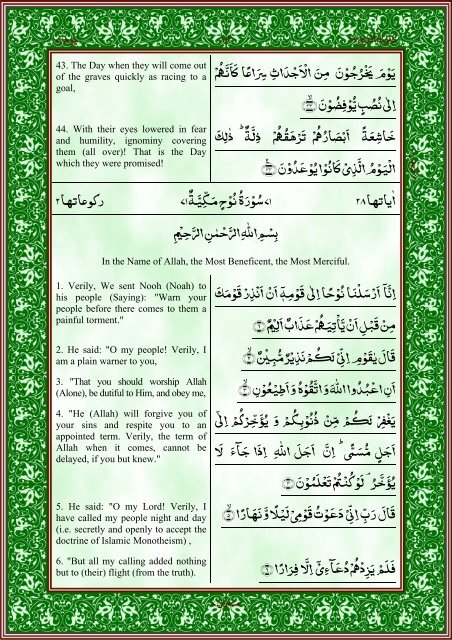 43. The Day when they will come out
of the graves quickly as racing to a
goal,
يَوْمَ يَخْرُجُوْنَ مِنَ الْاَجْدَاثِ سِرَاعًا كَاَنَّهُمْ
اِلٰى نُصُبٍ يُّوْفِضُوْنَ ﴿۴۳﴾
44. With their eyes lowered in fear
and humility, ignominy covering
them (all over)! That is the Day
which they were promised!
خَاشِعَةً اَبْصَارُهُمْ تَرْهَقُهُمْ ذِلَّةٌ ؕ ذٰلِكَ
الْيَوْمُ الَّذِىْ كَانُوْا يُوْعَدُوْنَ ﴿۴۴﴾
اٰياتها ٢٨ ٧١ سُوْرَةُ نُوْحٍ مَكِّيَّةٌ ٧١ ركوعاتها ٢
بِسْمِ اللهِ الرَّحْمٰنِ الرَّحِيْمِ
In the Name of Allah, the Most Beneficent, the Most Merciful.
1. Verily, We sent Nooh (Noah) to
his people (Saying): "Warn your
people before there comes to them a
painful torment."
اِنَّاۤ اَرْسَلْنَا نُوْحًا اِلٰى قَوْمِهٖۤ اَنْ اَنْذِرْ قَوْمَكَ
مِنْ قَبْلِ اَنْ يَّاْتِيَهُمْ عَذَابٌ اَلِيْمٌ ﴿۱﴾
2. He said: "O my people! Verily, I
am a plain warner to you,
قَالَ يٰقَوْمِ اِنِّىْ لَكُمْ نَذِيْرٌ مُّبِيْنٌ ﴿۲﴾
3. "That you should worship Allah
(Alone), be dutiful to Him, and obey me,
اَنِ اعْبُدُوا اللهَ وَاتَّقُوْهُ وَاَطِيْعُوْنِ ﴿۳﴾
4. "He (Allah) will forgive you of
your sins and respite you to an
appointed term. Verily, the term of
Allah when it comes, cannot be
delayed, if you but knew."
يَغْفِرْ لَكُمْ مِّنْ ذُنُوْبِكُمْ وَ يُؤَخِّرْكُمْ اِلٰٓى
اَجَلٍ مُّسَمًّى ؕ اِنَّ اَجَلَ اللهِ اِذَا جَآءَ لَا
يُؤَخَّرُ ۘ لَوْ كُنْتُمْ تَعْلَمُوْنَ ﴿۴﴾
5. He said: "O my Lord! Verily, I
have called my people night and day
(i.e. secretly and openly to accept the
doctrine of Islamic Monotheism) ,
قَالَ رَبِّ اِنِّىْ دَعَوْتُ قَوْمِىْ لَيْلًا وَّ نَهَارًا ﴿۵﴾
6. "But all my calling added nothing
but to (their) flight (from the truth).
فَلَمْ يَزِدْهُمْ دُعَآءِىْۤ اِلَّا فِرَارًا ﴿۶﴾